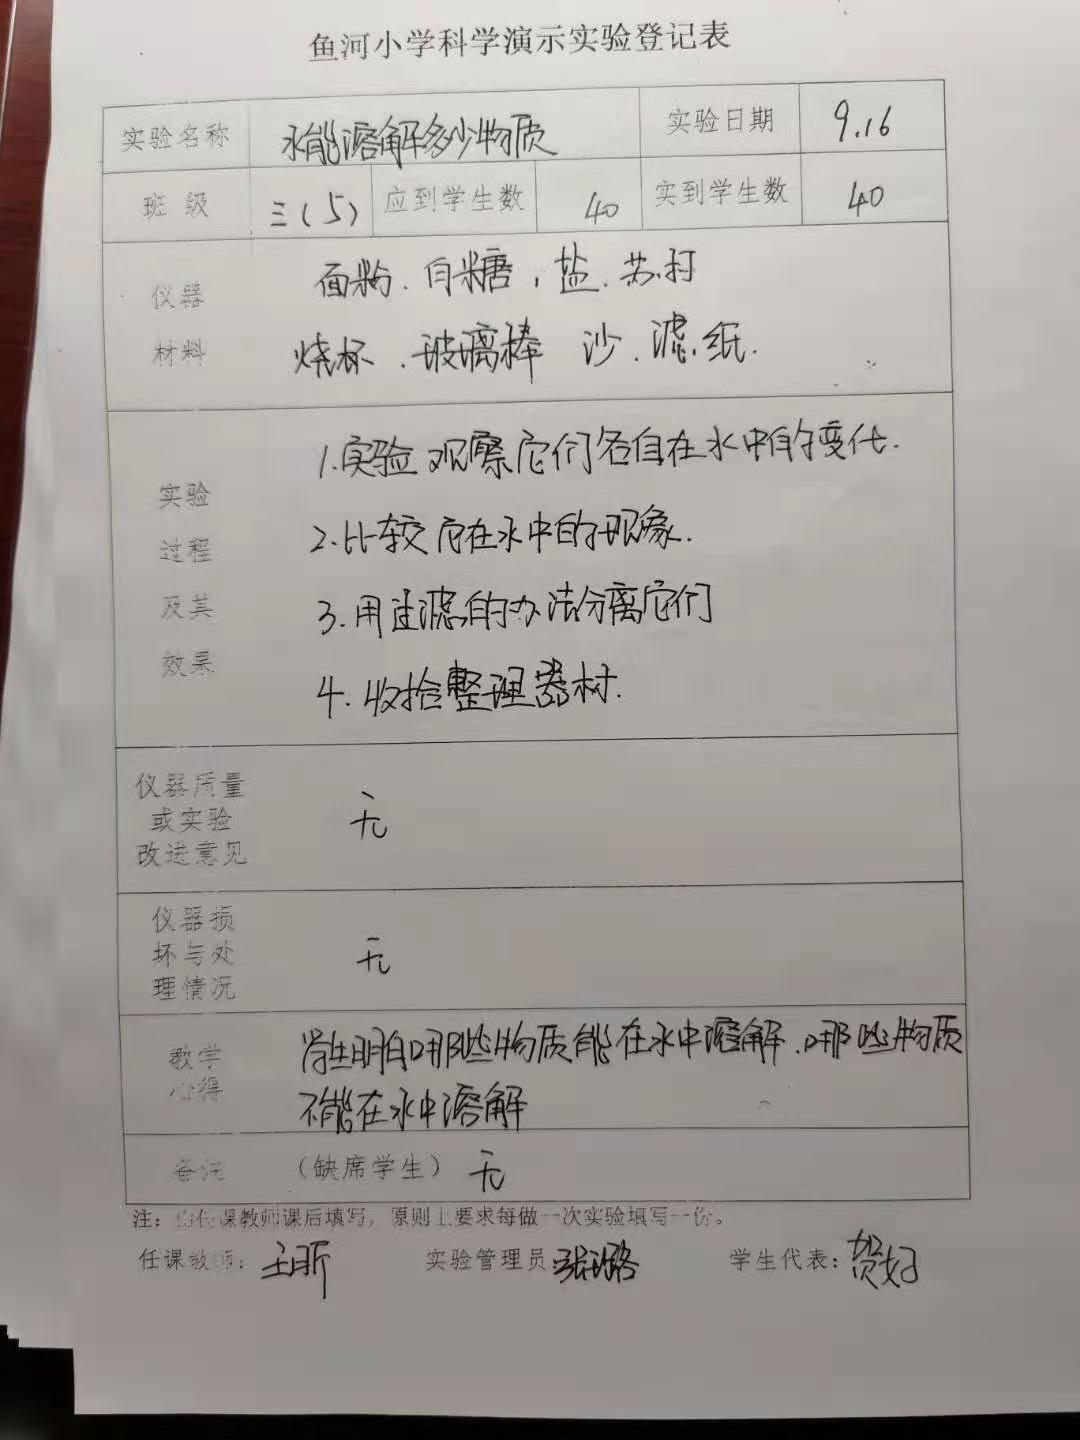 鱼河小学科学演示实验登记表
实验名称 水能溶解多少物质 实验日期 9.16
班 级 三(5) 应到学生数 40 实到学生数 40
仪器 面粉、白糖，盐、苏打
材料 烧杯、玻璃棒 沙、滤纸.
1.实验 观察它们各自在水中的变化.
实验
2.比较它在水中的现象.
过程
及其 3.用过滤的办法分离它们
效果 4.收拾整理器材.
仪器质量
或实验 无
改进意见
仪器损
坏与处 无
理情况
教学 学生明白哪些物质能在水中溶解、哪些物质
心得 不能在水中溶解
备注 （缺席学生） 无
注：由任课教师课后填写，原则上要求每做一次实验填写一份。
任课教师：王昕 实验管理员：张璐 学生代表：贺好